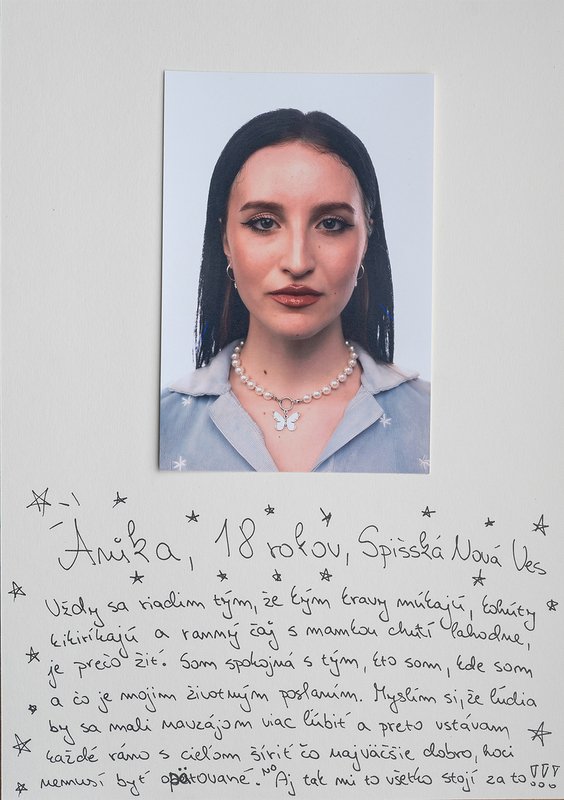 Anika, 18 rokov, Spišská Nová Ves
Vždy sa riadim tým, že kým kravy múkajú, kohúty
kikiríkajú a ranný čaj s mamkou chutí lahodne,
je prečo žiť. Som spokojná s tým, kto som, kde som
a čo je mojim životným poslaním. Myslím si, že ľudia
by sa mali navzájom viac ľúbiť a preto vstávam
každé ráno s cieľom šíriť čo najväčšie dobro, hoci
nemusí byť opätované. NO Aj tak mi to všetko stojí za to!!!